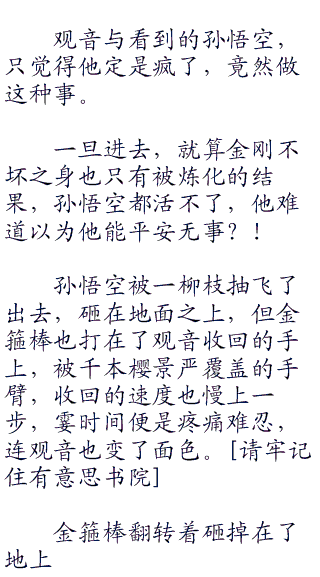 观音与看到的孙悟空，
只觉得他定是疯了，竟然做
这种事。
一旦进去，就算金刚不
坏之身也只有被炼化的结
果，孙悟空都活不了，他难
道以为他能平安无事？！
孙悟空被一柳枝抽飞了
出去，砸在地面之上，但金
箍棒也打在了观音收回的手
上，被千本樱景严覆盖的手
臂，收回的速度也慢上一
步，霎时间便是疼痛难忍，
连观音也变了面色。[请牢记
住有意思书院]
金箍棒翻转着砸掉在了
地上